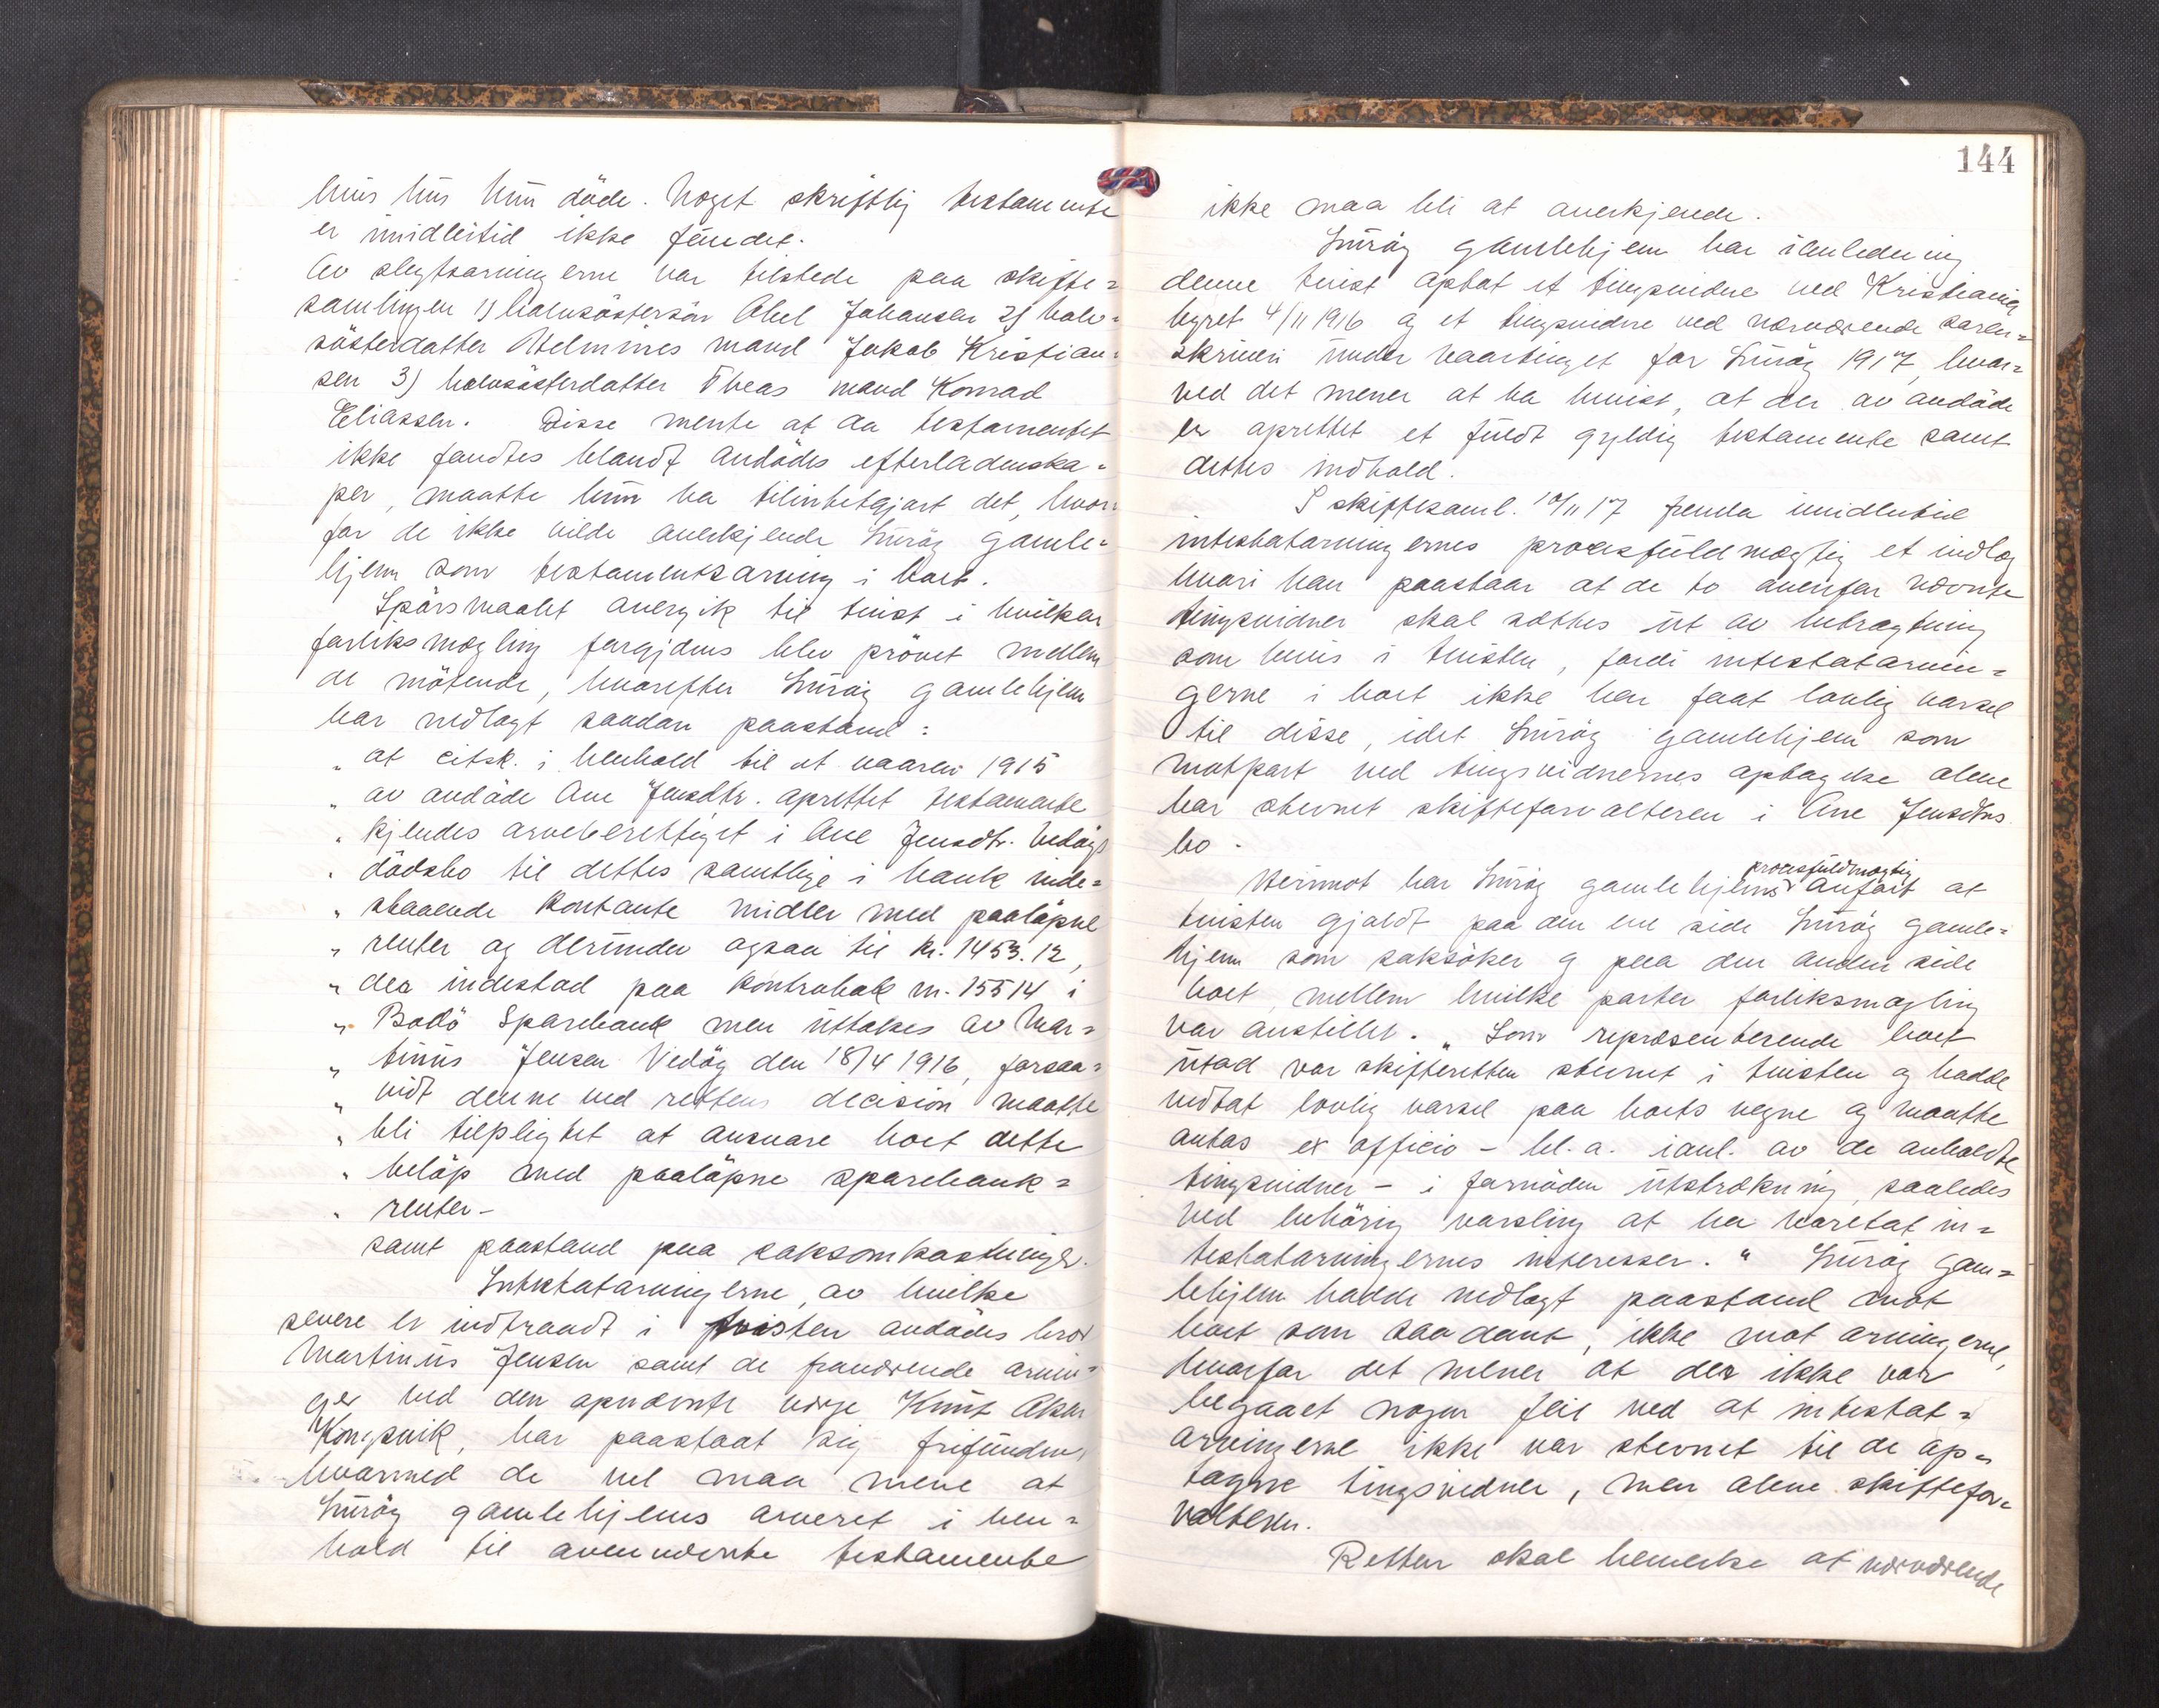 hvis hus hun døde. Noget skriftlig testamente
er imidlertid ikke fundet.
Av slegtsarvingerne var tilstede paa skifte=
samlingen 1) halvsøstersøn Abel Johansen 2) halv=
søsterdatter Helmines mand Jakob Kristian=
sen 3) halvsøsterdatter Theas mand Konrad
Eliassen. Disse mente at da testamentet
ikke fandtes blandt avdødes efterladenska=
per, maatte hun ha tilintetgjort det, hvor=
for de ikke vilde anerkjende Lurøy gamle=
hjem som testamentsarving i boet.
Spørsmaalet overgik til tvist i hvilken
forliksmægling forgjæves blev prøvet mellem
de møtende, hvorefter Lurøy gamlehjem
har nedlagt saadan paastand:
" at citsk. i henhold til et vaaren 1915
" av avdøde Ane Jensdtr. oprettet testamente
" kjendes arveberettiget i Ane Jensdtr. Vedøys
" dødsbo til dettes samtlige i bank inde=
" staaende kontante midler med paaløpne
" renter og derunder ogsaa til kr. 1453.12,
" der indestod paa kontrabok nr. 15514 i
" Bodø Sparebank men uttokes av Mar=
" tinus Jensen Vedøy den 18/4 1916, forsaa=
" vidt denne ved rettens decision maatte
" bli tilpligtet at ansvare boet dette
" beløp med paaløpne sparebank=
" renter -
samt paastand paa saksomkostninger.
Intestatarvingerne, av hvilke
senere er indtraadt i tvisten avdødes bror
Martinus Jensen samt de fraværende arvin=
ger ved den opnævnte verge Knut Aker
Konsvik, har paastaat sig frifunden,
hvormed de vel maa mene at
Lurøy gamlehjems arveret i hen=
hold til ovennævnte testamente
144
ikke maa bli at anerkjende.
Lurøy gamlehjem har i anledning
denne tvist optat et tingsvidne ved Kristiania
byret 4/11 1916 og et tingsvidne ved nærværende soren=
skriveri under vaartinget for Lurøy 1917, hvor=
ved det mener at ha bevist, at der av avdøde
er oprettet et fuldt gyldig testamente samt
dettes indhold.
I skiftesaml. 10/11 17 fremla imidlertid
intestatarvingernes procesfuldmægtig et indlæg
hvori han paastaar at de to ovenfor nævnte
tingsvidner skal sættes ut av betragtning
som bevis i tvisten, fordi intestatarvin=
gerne i boet ikke har faat lovlig varsel
til disse, idet Lurøy gamlehjem som
motpart ved tingsvidnernes optagelse alene
har stevnet skifteforvalteren i Ane Jensdtrs
bo.
Herimot har Lurøy gamlehjems procesfuldmægtig anført at
tvisten gjaldt paa den ene side Lurøy gamle=
hjem som saksøker og paa den anden side
boet, mellem hvilke parter forliksmægling
var anstillet. "Som repræsenterende boet
utad var skifteretten stevnet i tvisten og hadde
vedtat lovlig varsel paa boets vegne og maatte
antas ex officio - bl. a. i anl. av de anholdte
tingsvidner - i fornøden utstrækning, saaledes
ved behørig varsling at ha varetat in=
testatarvingernes interesser." Lurøy gam=
lehjem hadde nedlagt paastand mot
boet som saadant, ikke mot arvingerne,
hvorfor det mener at der ikke var
begaaet nogen feil ved at intestat=
arvingerne ikke var stevnet til de op=
tagne tingsvidner, men alene skiftefor=
valteren.
Retten skal bemerke at nærværende